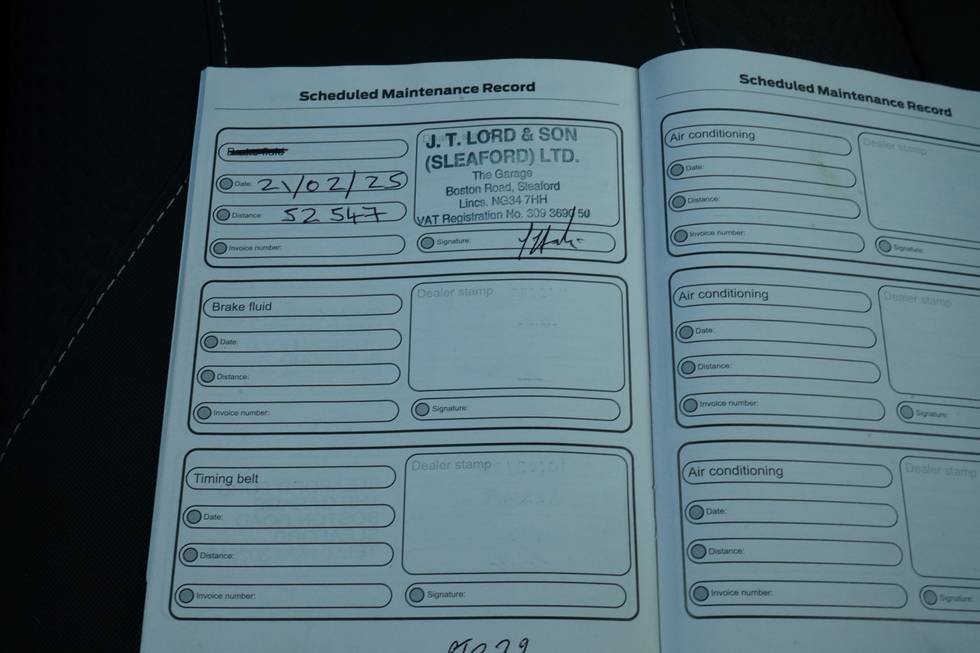 Scheduled Maintenance Record
Brake fluid
Date: 21/02/25
Distance: 52 547
Invoice number:
J. T. LORD & SON
(SLEAFORD) LTD.
The Garage
Boston Road, Sleaford
Lincs. NG34 7HH
VAT Registration No. 309 3690 50
Signature:
Brake fluid
Date:
Distance:
Invoice number:
Dealer stamp
Signature:
Timing belt
Date:
Distance:
Invoice number:
Dealer stamp
Signature:
Scheduled Maintenance Record
Air conditioning
Date:
Distance:
Invoice number:
Dealer stamp
Signature:
Air conditioning
Date:
Distance:
Invoice number:
Dealer stamp
Signature:
Air conditioning
Date:
Distance:
Invoice number:
Dealer stamp
Signature: